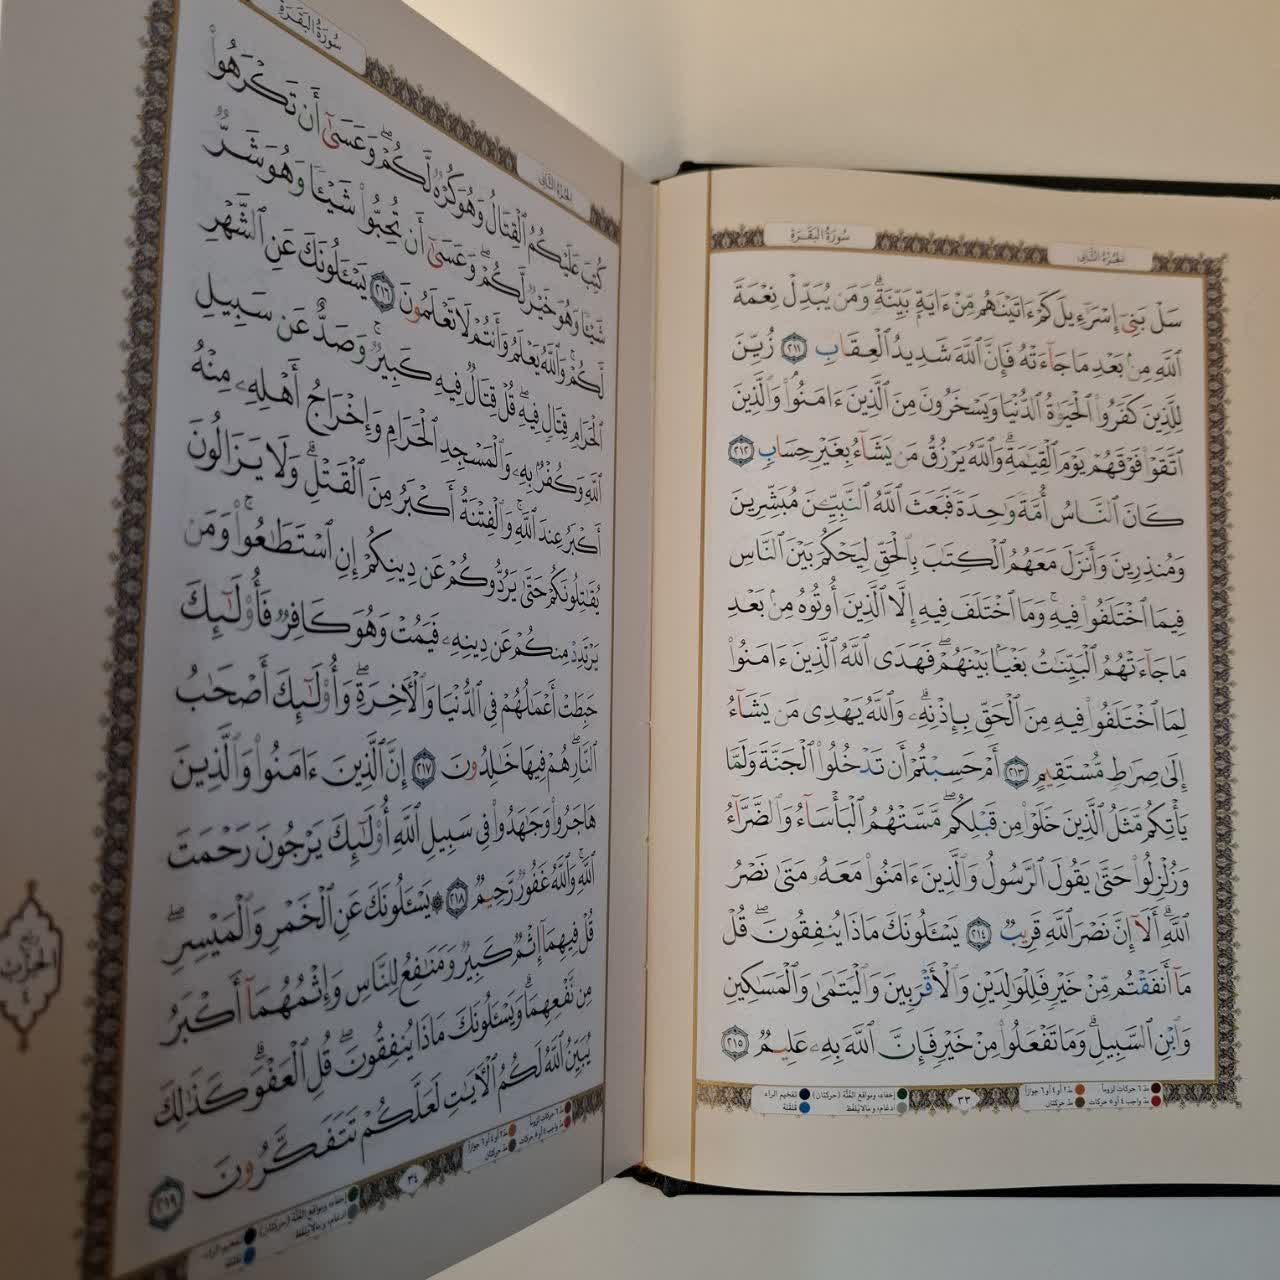 سُورَةُ البَقَرَةِ
الجُزْءُ الثَّانِي
سَلْ بَنِىٓ إِسْرَٰٓءِيلَ كَمْ ءَاتَيْنَٰهُم مِّنْ ءَايَةٍۭ بَيِّنَةٍۗ وَمَن يُبَدِّلْ نِعْمَةَ
ٱللَّهِ مِنۢ بَعْدِ مَا جَآءَتْهُ فَإِنَّ ٱللَّهَ شَدِيدُ ٱلْعِقَابِ ٢١١ زُيِّنَ
لِلَّذِينَ كَفَرُوا۟ ٱلْحَيَوٰةُ ٱلدُّنْيَا وَيَسْخَرُونَ مِنَ ٱلَّذِينَ ءَامَنُوا۟ۘ وَٱلَّذِينَ
ٱتَّقَوْا۟ فَوْقَهُمْ يَوْمَ ٱلْقِيَٰمَةِۗ وَٱللَّهُ يَرْزُقُ مَن يَشَآءُ بِغَيْرِ حِسَابٍ ٢١٢
كَانَ ٱلنَّاسُ أُمَّةً وَٰحِدَةً فَبَعَثَ ٱللَّهُ ٱلنَّبِيِّۦنَ مُبَشِّرِينَ
وَمُنذِرِينَ وَأَنزَلَ مَعَهُمُ ٱلْكِتَٰبَ بِٱلْحَقِّ لِيَحْكُمَ بَيْنَ ٱلنَّاسِ
فِيمَا ٱخْتَلَفُوا۟ فِيهِۚ وَمَا ٱخْتَلَفَ فِيهِ إِلَّا ٱلَّذِينَ أُوتُوهُ مِنۢ بَعْدِ
مَا جَآءَتْهُمُ ٱلْبَيِّنَٰتُ بَغْيًۢا بَيْنَهُمْۖ فَهَدَى ٱللَّهُ ٱلَّذِينَ ءَامَنُوا۟
لِمَا ٱخْتَلَفُوا۟ فِيهِ مِنَ ٱلْحَقِّ بِإِذْنِهِۦۗ وَٱللَّهُ يَهْدِى مَن يَشَآءُ
إِلَىٰ صِرَٰطٍ مُّسْتَقِيمٍ ٢١٣ أَمْ حَسِبْتُمْ أَن تَدْخُلُوا۟ ٱلْجَنَّةَ وَلَمَّا
يَأْتِكُم مَّثَلُ ٱلَّذِينَ خَلَوْا۟ مِن قَبْلِكُمۖ مَّسَّتْهُمُ ٱلْبَأْسَآءُ وَٱلضَّرَّآءُ
وَزُلْزِلُوا۟ حَتَّىٰ يَقُولَ ٱلرَّسُولُ وَٱلَّذِينَ ءَامَنُوا۟ مَعَهُۥ مَتَىٰ نَصْرُ
ٱللَّهِۗ أَلَآ إِنَّ نَصْرَ ٱللَّهِ قَرِيبٌ ٢١٤ يَسْـَٔلُونَكَ مَاذَا يُنفِقُونَۖ قُلْ
مَآ أَنفَقْتُم مِّنْ خَيْرٍ فَلِلْوَٰلِدَيْنِ وَٱلْأَقْرَبِينَ وَٱلْيَتَٰمَىٰ وَٱلْمَسَٰكِينِ
وَٱبْنِ ٱلسَّبِيلِۗ وَمَا تَفْعَلُوا۟ مِنْ خَيْرٍ فَإِنَّ ٱللَّهَ بِهِۦ عَلِيمٌ ٢١٥
مد ٦ حركات لزوماً
مد ٢ أو ٤ أو ٦ جوازاً
مد واجب ٤ أو ٥ حركات
مد حركتان
٣٣
إخفاء، ومواقع الغُنَّة (حركتان)
تفخيم الراء
ادغام، وما لا يُلفظ
قلقلة
سُورَةُ البَقَرَةِ
الجُزْءُ الثَّانِي
كُتِبَ عَلَيْكُمُ ٱلْقِتَالُ وَهُوَ كُرْهٌ لَّكُمْۖ وَعَسَىٰٓ أَن تَكْرَهُوا۟
شَيْـًٔا وَهُوَ خَيْرٌ لَّكُمْۖ وَعَسَىٰٓ أَن تُحِبُّوا۟ شَيْـًٔا وَهُوَ شَرٌّ
لَّكُمْۗ وَٱللَّهُ يَعْلَمُ وَأَنتُمْ لَا تَعْلَمُونَ ٢١٦ يَسْـَٔلُونَكَ عَنِ ٱلشَّهْرِ
ٱلْحَرَامِ قِتَالٍ فِيهِۖ قُلْ قِتَالٌ فِيهِ كَبِيرٌۖ وَصَدٌّ عَن سَبِيلِ
ٱللَّهِ وَكُفْرٌۢ بِهِۦ وَٱلْمَسْجِدِ ٱلْحَرَامِ وَإِخْرَاجُ أَهْلِهِۦ مِنْهُ
أَكْبَرُ عِندَ ٱللَّهِۚ وَٱلْفِتْنَةُ أَكْبَرُ مِنَ ٱلْقَتْلِۗ وَلَا يَزَالُونَ
يُقَٰتِلُونَكُمْ حَتَّىٰ يَرُدُّوكُمْ عَن دِينِكُمْ إِنِ ٱسْتَطَٰعُوا۟ۚ وَمَن
يَرْتَدِدْ مِنكُمْ عَن دِينِهِۦ فَيَمُتْ وَهُوَ كَافِرٌ فَأُو۟لَٰٓئِكَ
حَبِطَتْ أَعْمَٰلُهُمْ فِى ٱلدُّنْيَا وَٱلْـَٔاخِرَةِۖ وَأُو۟لَٰٓئِكَ أَصْحَٰبُ
ٱلنَّارِۖ هُمْ فِيهَا خَٰلِدُونَ ٢١٧ إِنَّ ٱلَّذِينَ ءَامَنُوا۟ وَٱلَّذِينَ
هَاجَرُوا۟ وَجَٰهَدُوا۟ فِى سَبِيلِ ٱللَّهِ أُو۟لَٰٓئِكَ يَرْجُونَ رَحْمَتَ
ٱللَّهِۚ وَٱللَّهُ غَفُورٌ رَّحِيمٌ ٢١٨ ۞ يَسْـَٔلُونَكَ عَنِ ٱلْخَمْرِ وَٱلْمَيْسِرِۖ
قُلْ فِيهِمَآ إِثْمٌ كَبِيرٌ وَمَنَٰفِعُ لِلنَّاسِ وَإِثْمُهُمَآ أَكْبَرُ
مِن نَّفْعِهِمَاۗ وَيَسْـَٔلُونَكَ مَاذَا يُنفِقُونَۖ قُلِ ٱلْعَفْوَۗ كَذَٰلِكَ
يُبَيِّنُ ٱللَّهُ لَكُمُ ٱلْـَٔايَٰتِ لَعَلَّكُمْ تَتَفَكَّرُونَ ٢١٩
ربع
الحزب
٤
مد ٦ حركات لزوماً
مد ٢ أو ٤ أو ٦ جوازاً
مد واجب ٤ أو ٥ حركات
مد حركتان
٣٤
إخفاء، ومواقع الغُنَّة (حركتان)
تفخيم الراء
ادغام، وما لا يُلفظ
قلقلة